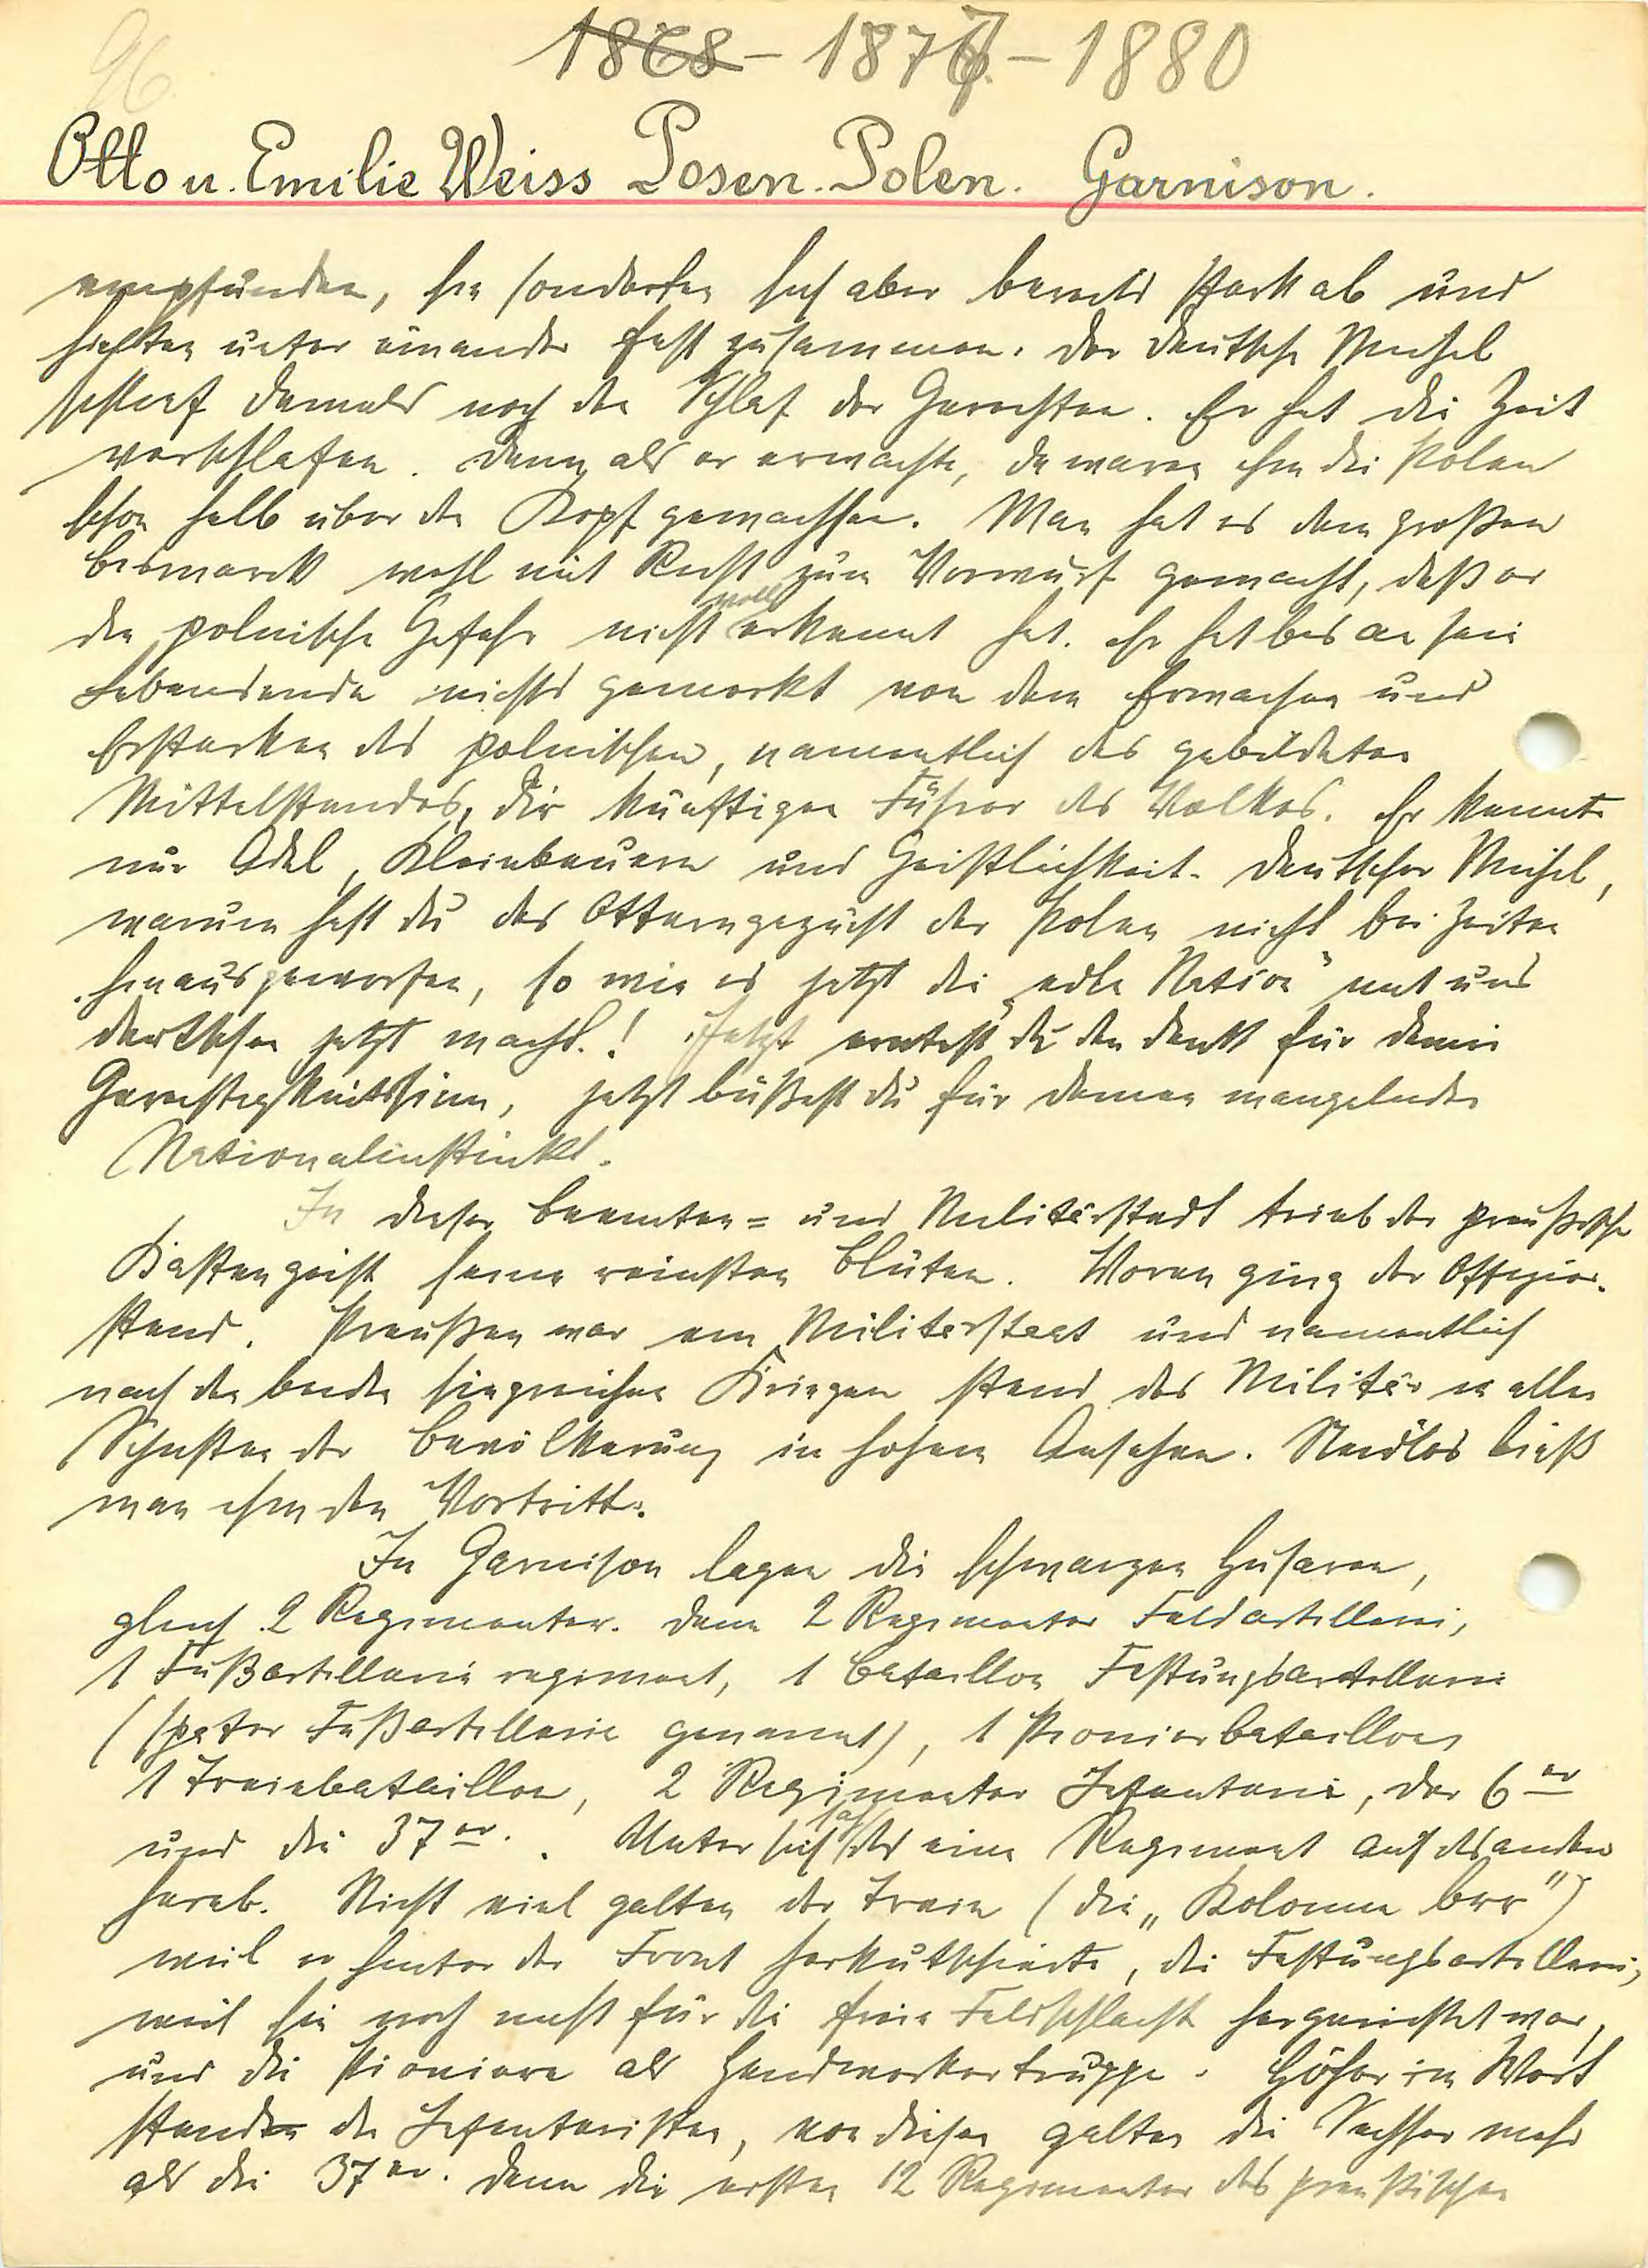 96.
1868 - 18767. - 1880
Otto u. Emilie Weiss Posen. Polen. Garnison.
empfunden, sie sonderten sich aber bereits stark ab und
hielten unter einander fest zusammen. Der deutsche Michel
schlief damals noch den Schlaf der Gerechten. Er hat die Zeit
verschlafen. Denn als er erwachte, da waren ihm die Polen
schon halb über den Kopf gewachsen. Man hat es dem großen
Bismarck wohl mit Recht zum Vorwurf gemacht, daß er
die polnische Gefahr nicht voll erkannt hat. Er hat bis an sein
Lebensende nichts gemerkt von dem Erwachen und
Erstarken des polnischen, namentlich des gebildeten
Mittelstandes, die künftigen Führer des Volkes. Er kannte
nur Adel, Kleinbauern und Geistlichkeit. Deutscher Michel,
warum hast du das Otterngezücht der Polen nicht bei Zeiten
hinausgeworfen, so wie es jetzt die „edle Nation" mit uns
Deutschen jetzt macht.! Jetzt erntest du den Dank für deinen
Gerechtigkeitssinn, jetzt büßest du für deinen mangelnden
Nationalinstinkt.
In dieser Beamten= und Militärstadt trieb der preußische
Kastengeist seine reinsten Blüten. Voran ging der Offizier-
stand. Preußen war ein Militärstaat und namentlich
nach den beiden siegreichen Kriegen stand das Militär in allen
Schichten der Bevölkerung in hohem Ansehen. Neidlos ließ
man ihm den Vortritt.
In Garnison lagen die schwarzen Husaren,
gleich 2 Regimenter. Dann 2 Regimenter Feldartillerie,
1 Fußartillerieregiment, 1 Bataillon Festungsartillerie
(später Fußartillerie genannt), 1 Pionierbataillon
1 Trainbataillon, 2 Regimenter Infanterie, der 6er
und die 37er. Unter sich sah das eine Regiment auf das andere
herab. Nicht viel galten der Train (die „Kolonne brr")
weil er hinter der Front herkutschierte, die Festungsartillerie,
weil sie noch nicht für die freie Feldschlacht hergerichtet war,
und die Pioniere als Handwerkertruppe. Höher im Wert
standen die Infanteristen, von diesen galten die Sechser mehr
als die 37er. Denn die ersten 12 Regimenter des preußischen